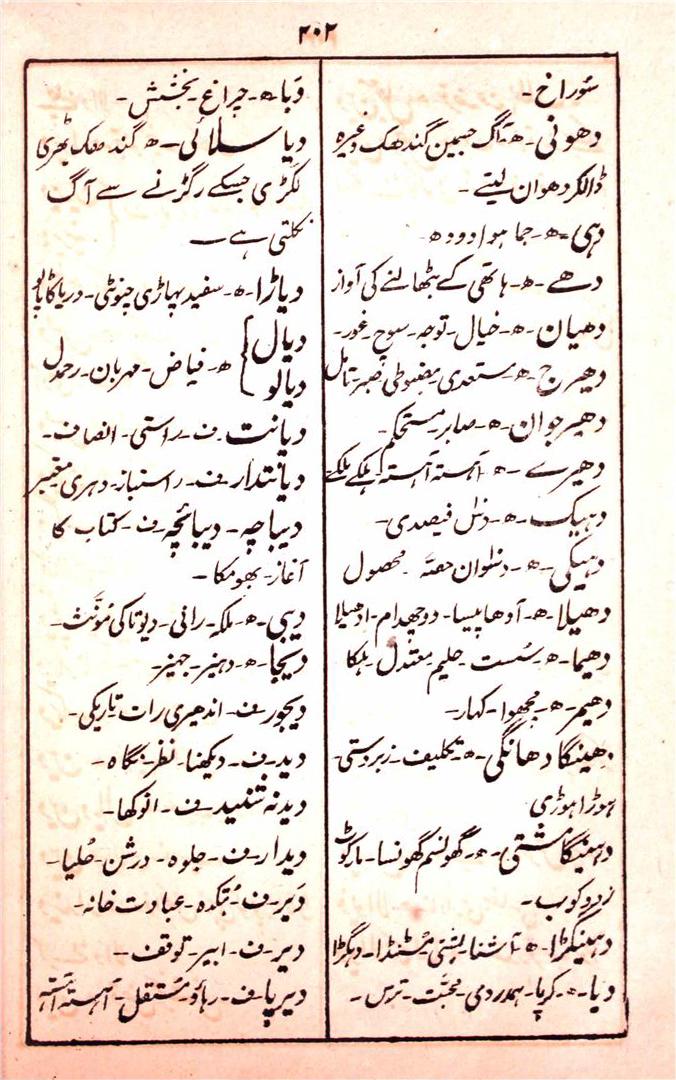 ۲۰۲
سُوراخ۔
دھونی۔ھ۔آگ جسمین گندھک وغیرہ
ڈالکر دھوان لیتے۔
دہی۔ھ۔جما ہوا دودھ۔
دھے۔ھ۔ہاتھی کے بٹھالنے کی آواز
دھیان۔ھ۔خیال۔توجہ۔سوچ۔غور۔
دھیرج۔ھ۔مستعدی۔مضبوطی۔صبر۔تامل
دھیرجوان۔ھ۔صابر۔مستحکم۔
دھیرے۔ھ۔آہستہ آہستہ۔ہلکے ہلکے
دہیک۔ھ۔دس فیصدی۔
دہیکی۔ھ۔دسوان حصّہ محصول
دھیلا۔ھ۔آدھا پیسا۔دو چھدام۔ادھیلا
دھیما۔ھ۔سُست۔حلیم۔معتدل۔ہلکا
دھیمر۔ھ۔مچھوا۔کہار۔
دھینگا دھانگی۔ھ۔تکلیف۔زبردستی۔
ہوڑا ہوڑی
دھینگا مشتی۔ھ۔گھونسم گھونسا۔مارکوٹ
زدوکوب۔
دھینگڑا۔ھ۔آشنا۔ مُسٹنڈا۔دہگڑا
دیا۔ھ۔کرپا۔ہمدردی۔محبّت۔ترس۔
دِیا۔ھ۔چراغ۔بخشش۔
دیا سلائی۔ھ۔گندھک بھری
لکڑی جسکے رگڑنے سے آگ
نکلتی ہے۔
دیاڑا۔ھ۔سفید پہاڑی چنوٹی۔دریا کا
دیال
دیالو } ھ۔فیاض۔مہربان۔رحمدل
دیانت۔ف۔راستی۔انصاف۔
دیانتدار۔ف۔راستباز۔دہری۔معتبر
دیباچہ۔دیبائچہ۔ف۔کتاب کا
آغاز۔بھومکا۔
دیبی۔ھ۔ملکہ۔رانی۔دیوتا کی مُؤنّث۔
دیجا۔ھ۔دہیز۔جہیز۔
دیجور۔ف۔اندھیری رات۔تاریکی۔
دید۔ف۔دیکھنا۔نظر۔نگاہ۔
دید نہ شنید۔ف۔انوکھا۔
دیدار۔ف۔جلوہ۔درشن۔حُلیا۔
دَیر۔ف۔بُتکدہ۔عبادت خانہ۔
دیر۔ف۔ابیر۔توقف۔
دیرپا۔ف۔رہاؤ۔مُستقل۔آہستہ آہستہ